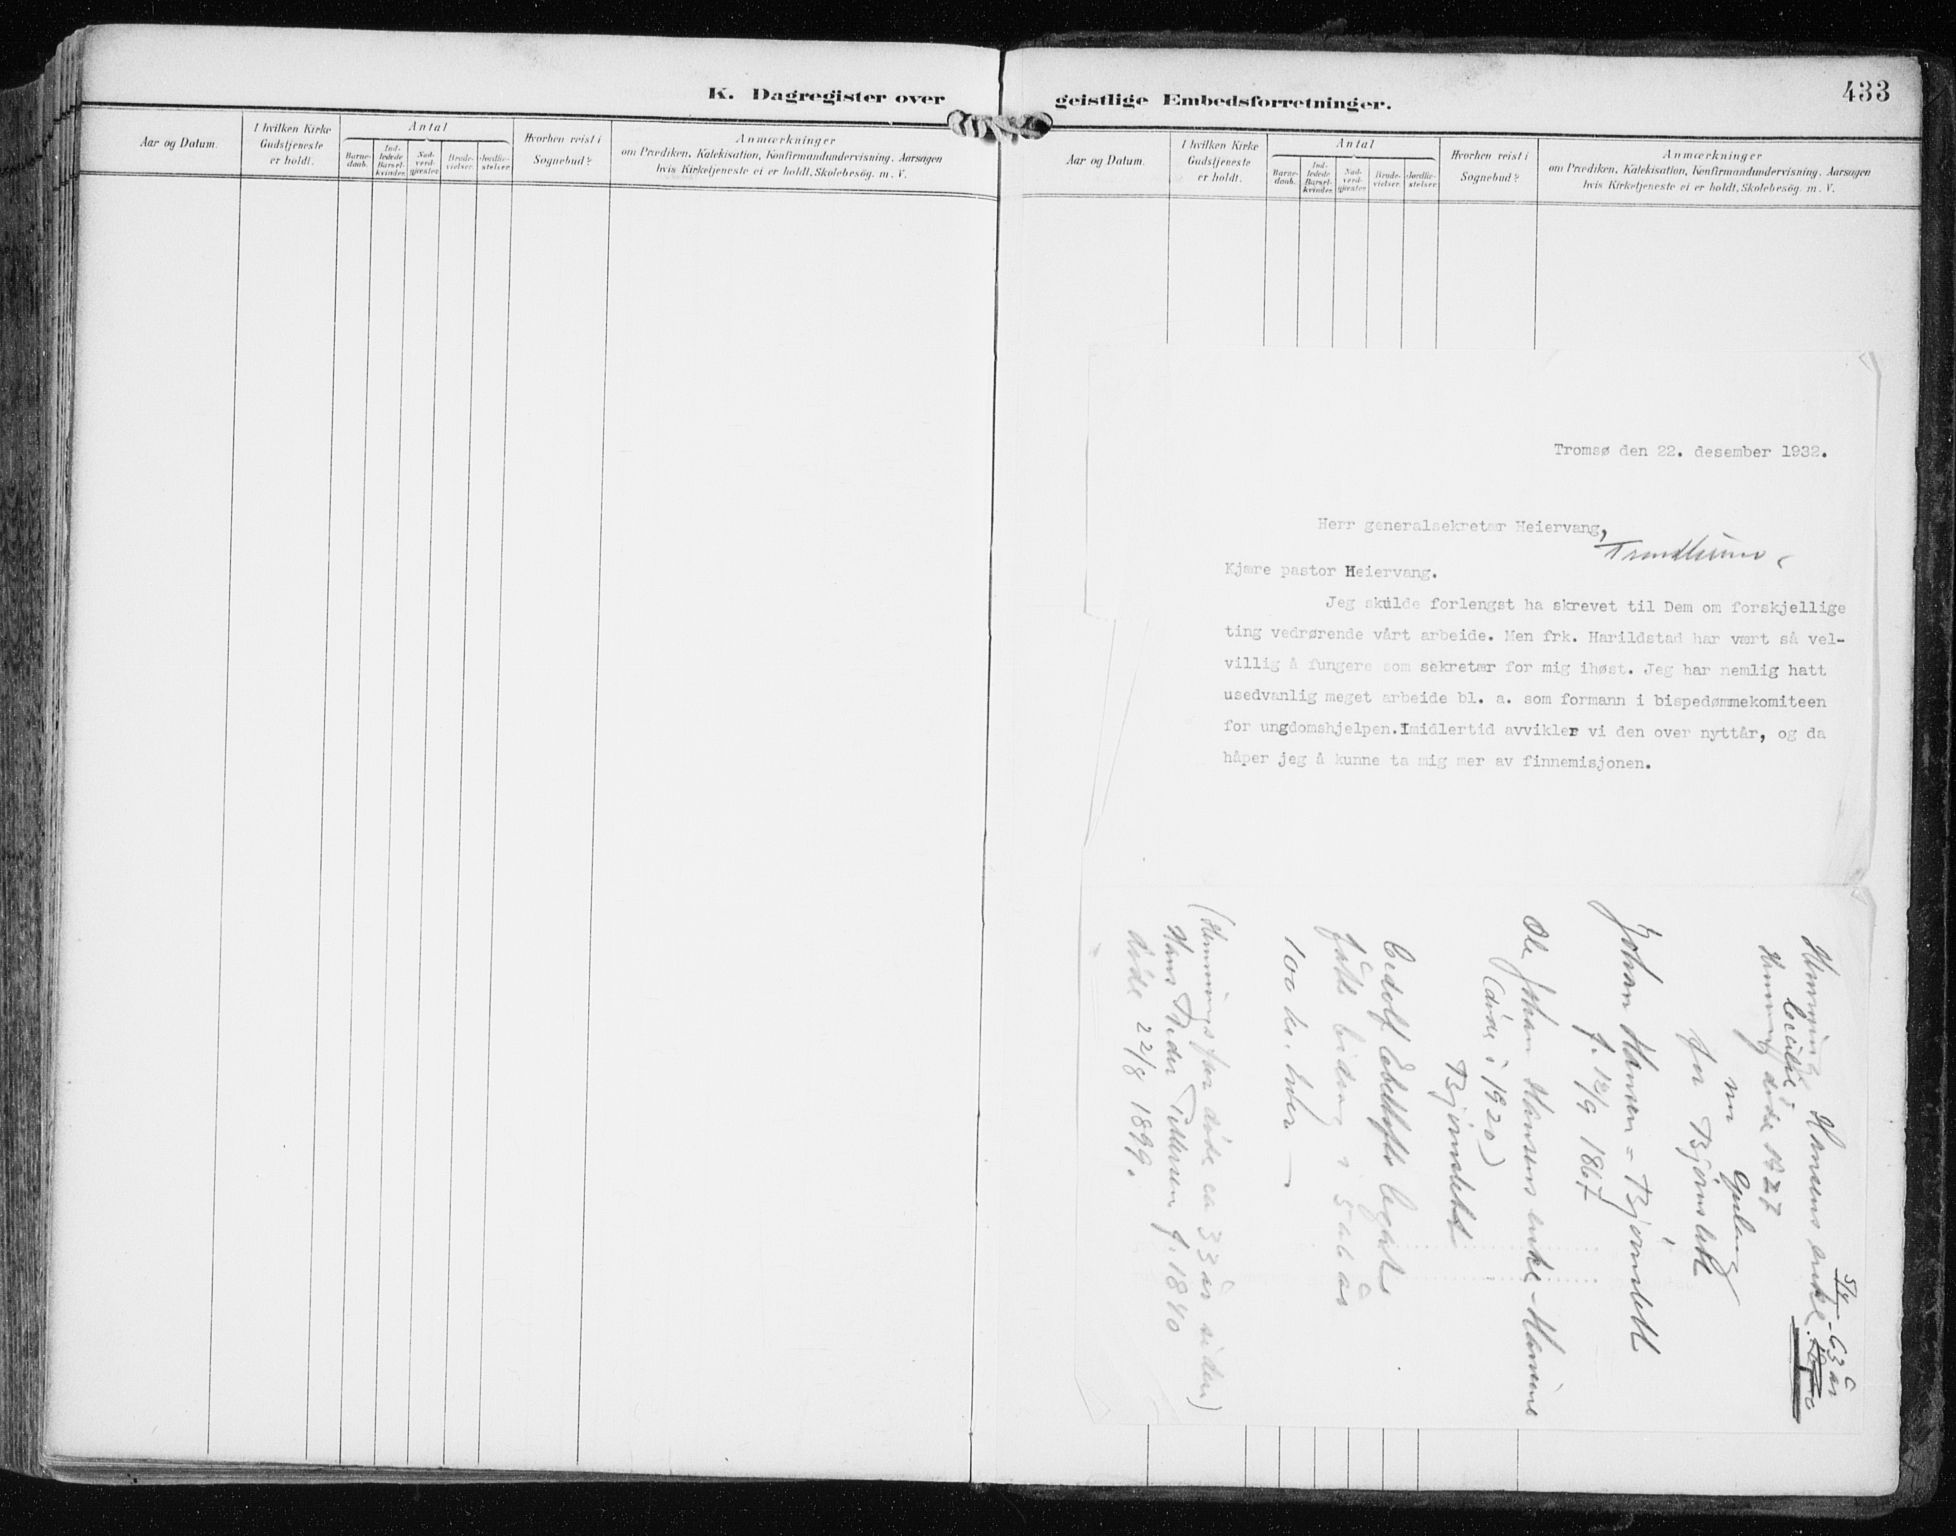 K. Dagregister over
geistlige Embedsforretninger.
433
Aar og Datum.
I hvilken Kirke
Gudstjeneste
er holdt.
Antal
Barne-
daab.
Ind-
ledede
Barsel-
kvinder.
Nad-
verd-
gjæster.
Brude-
vielser.
Jordfæ-
stelser.
Hvorhen reist i
Sognebud?
Anmærkninger
om Prædiken, Katekisation, Konfirmandundervisning, Aarsagen
hvis Kirketjeneste ei er holdt, Skolebesög. m. V.
Aar og Datum.
I hvilken Kirke
Gudstjeneste
er holdt.
Antal
Barne-
daab.
Ind-
ledede
Barsel-
kvinder.
Nad-
verd-
gjæster.
Brude-
vielser.
Jordfæ-
stelser.
Hvorhen reist i
Sognebud?
Anmærkninger
om Prædiken, Katekisation, Konfirmandundervisning, Aarsagen
hvis Kirketjeneste ei er holdt, Skolebesög. m. V.
Tromsø den 22. desember 1932.
Herr generalsekretær Heiervang,
Trondheim
Kjære pastor Heiervang.
Jeg skulde forlengst ha skrevet til Dem om forskjellige
ting vedrørende vårt arbeide. Men frk. Harildstad har vært så vel-
villig å fungere som sekretær for mig ihøst. Jeg har nemlig hatt
usedvanlig meget arbeide bl. a. som formann i bispedømmekomiteen
for ungdomshjelpen.Imidlertid avvikler vi den over nyttår, og da
håper jeg å kunne ta mig mer av finnemisjonen.
Henning Hansens enke
63 år
Henning døde 1927
for Bjørnslett
Johan Hansen = Bjørnslett
f. 12/9 1867
Ole Johan Hansens enke - Hansine
(døde i 1920)
Bjørnslett
Ebeltofts legat
fått bidrag i 5 al 6 år
100 kr.
(Hennings far døde ca 33 år siden)
Hans Peder Pedersen f. 1840
døde 22/8 1899.